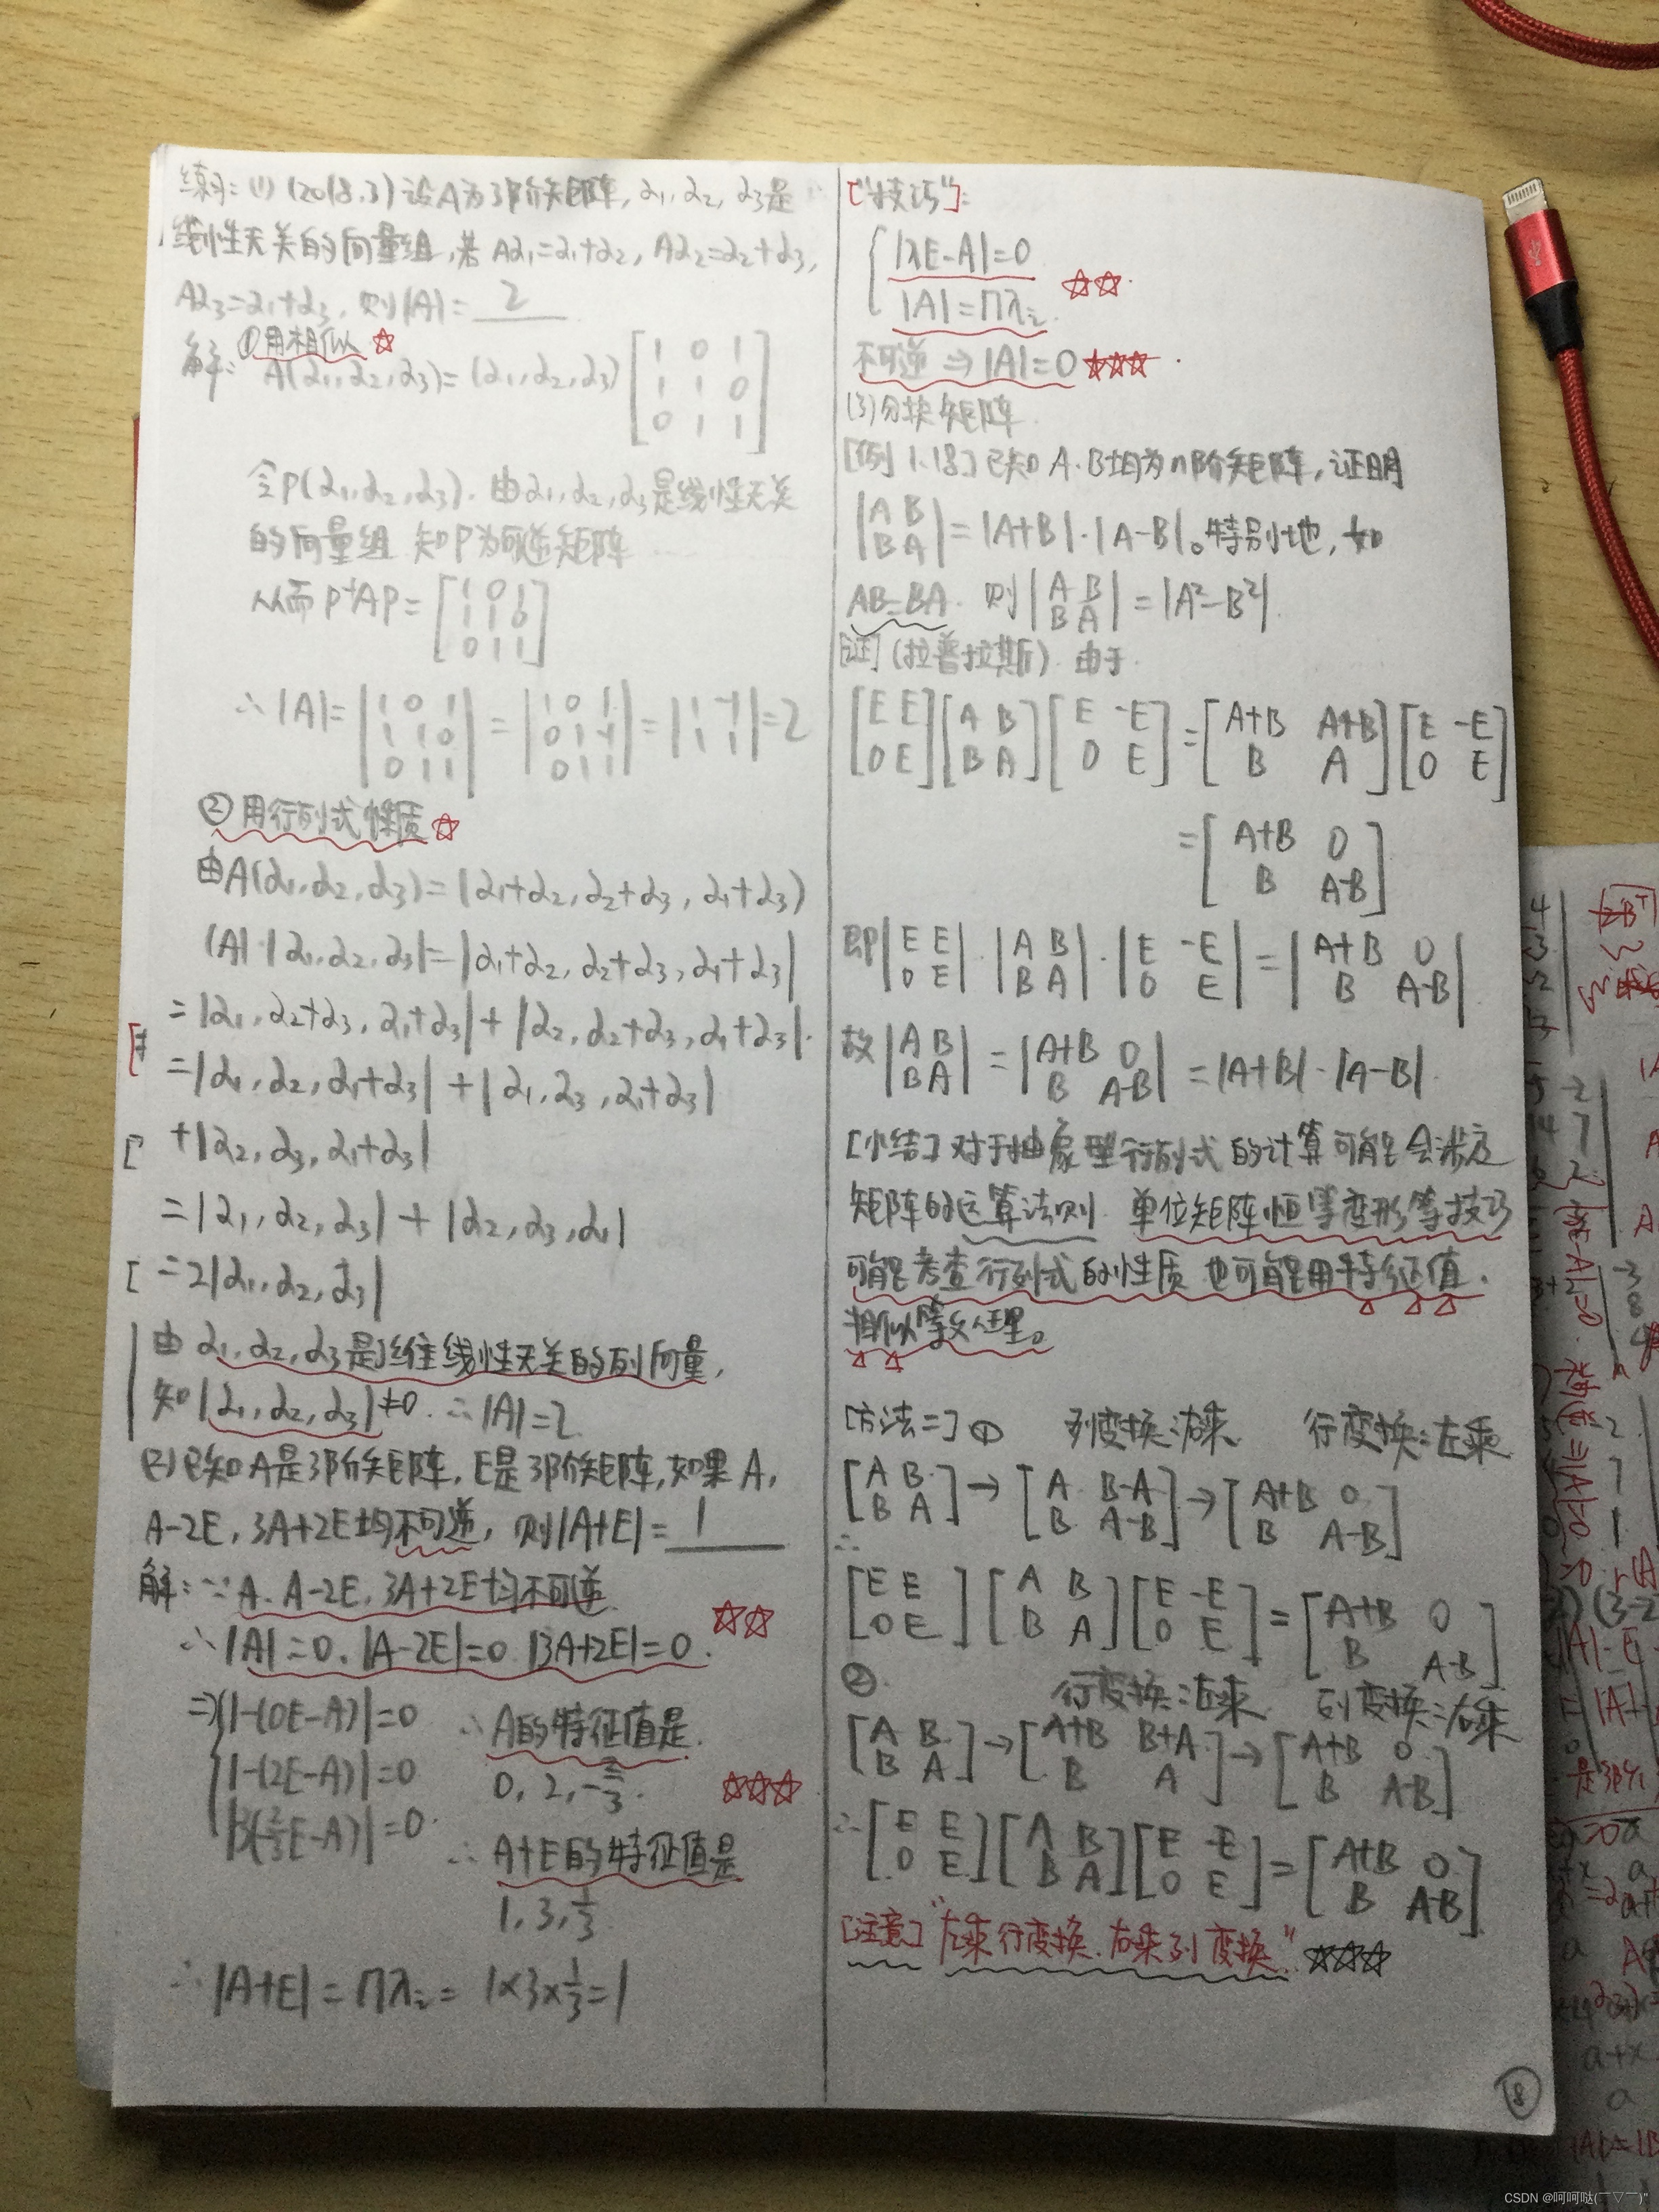 练习: (1) (2018.3) 设A为3阶矩阵, α₁, α₂, α₃是
线性无关的向量组, 若 Aα₁=α₁+α₂, Aα₂=α₂+α₃,
Aα₃=α₁+α₃, 则|A|= 2
①用相似 ☆
解: A(α₁,α₂,α₃)=(α₁,α₂,α₃) [1 0 1
1 1 0
0 1 1]
令P(α₁,α₂,α₃). 由α₁,α₂,α₃是线性无关
的向量组 知P为可逆矩阵
从而 P⁻¹AP = [1 0 1
1 1 0
0 1 1]
∴|A|= |1 0 1; 1 1 0; 0 1 1| = |1 0 1; 0 1 -1; 0 1 1| = |1 -1; 1 1| = 2
②用行列式性质 ☆
由A(α₁,α₂,α₃)=(α₁+α₂, α₂+α₃, α₁+α₃)
|A|·|α₁,α₂,α₃|=|α₁+α₂, α₂+α₃, α₁+α₃|
=|α₁, α₂+α₃, α₁+α₃|+|α₂, α₂+α₃, α₁+α₃|.
=|α₁, α₂, α₁+α₃|+|α₁, α₃, α₁+α₃|
+|α₂, α₃, α₁+α₃|
=|α₁, α₂, α₃|+|α₂, α₃, α₁|
=2|α₁, α₂, α₃|
由 α₁, α₂, α₃是3维线性无关的列向量,
知|α₁, α₂, α₃|≠0. ∴|A|=2
(2) 已知A是3阶矩阵, E是3阶矩阵, 如果A,
A-2E, 3A+2E均不可逆, 则|A+E|= 1
解: ∵A、A-2E, 3A+2E均不可逆
∴|A|=0, |A-2E|=0 |3A+2E|=0. ☆☆
⇒ |-(0E-A)|=0 ∴A的特征值是
|-(2E-A)|=0 0, 2, -2/3. ☆☆☆
|3(-2/3E-A)|=0. ∴A+E的特征值是
1, 3, 1/3
∴|A+E|=Πλᵢ= 1×3×1/3=1
["技巧"]:
{ |λE-A|=0
|A|=Πλᵢ ☆☆
不可逆 ⇒ |A|=0 ☆☆☆
(3)分块矩阵
[例1.18] 已知A.B均为n阶矩阵, 证明
|A B; B A| = |A+B|·|A-B|。特别地, 如
AB=BA. 则|A B; B A| = |A²-B²|.
[证] (拉普拉斯) 由于
[E E; 0 E][A B; B A][E -E; 0 E] = [A+B A+B; B A][E -E; 0 E]
= [A+B 0; B A-B]
即|E E; 0 E|·|A B; B A|·|E -E; 0 E| = |A+B 0; B A-B|
故|A B; B A| = |A+B 0; B A-B| = |A+B|·|A-B|.
[小结] 对于抽象型行列式的计算可能会涉及
矩阵的运算法则 单位矩阵恒等变形等技巧
可能考查行列式的性质 也可能用特征值.
相似等处理。
[方法二] ① 列变换: 右乘 行变换: 左乘
[A B; B A] → [A B-A; B A-B] → [A+B 0; B A-B]
∴
[E E; 0 E][A B; B A][E -E; 0 E] = [A+B 0; B A-B]
②. 行变换: 左乘 列变换: 右乘
[A B; B A] → [A+B B+A; B A] → [A+B 0; B A-B]
∴[E E; 0 E][A B; B A][E -E; 0 E] = [A+B 0; B A-B]
[注意] "左乘行变换. 右乘列变换." ☆☆☆
⑧
CSDN @呵呵哒(￣▽￣)"